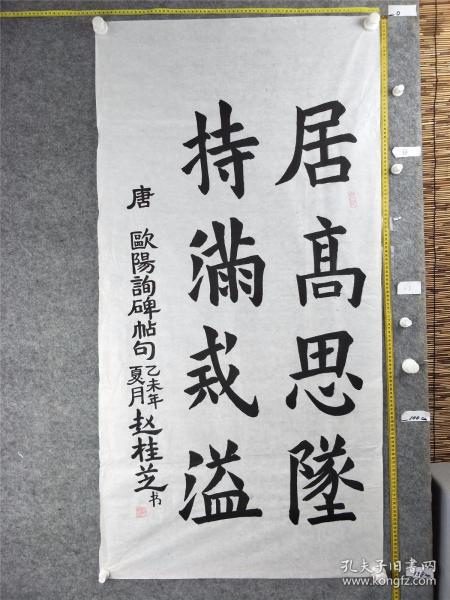 居高思墜
持滿戒溢
唐 歐陽詢碑帖句
乙未年
夏月
赵桂芝书
孔夫子旧书网
www.kongfz.com